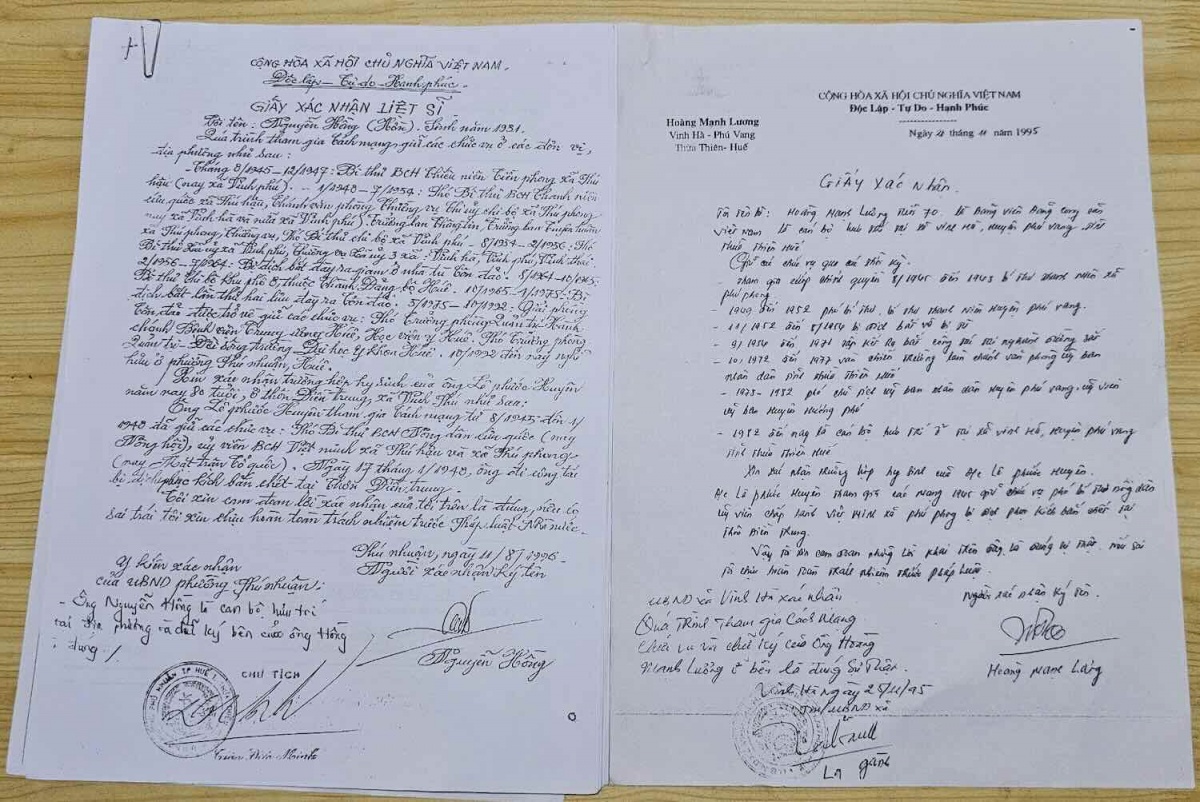 CỘNG HÒA XÃ HỘI CHỦ NGHĨA VIỆT NAM.
Độc lập - Tự do - Hạnh phúc.
GIẤY XÁC NHẬN LIỆT SĨ
Tôi tên: Nguyễn Hồng (Hồn). Sinh năm 1931.
Quá trình tham gia cách mạng, giữ các chức vụ ở các đơn vị,
địa phương như sau:
- Tháng 8/1945 - 12/1947: Bí thư BCH Thiếu niên Tiền phong xã Thú
hậu (nay xã Vinh phú). - 1/1948 - 7/1954: Phó Bí thư BCH Thanh niên
cứu quốc xã Thú hậu, Chánh văn phòng Thường vụ Thú ủy chi bộ xã Phú phong
nay xã Vinh hà và nửa xã Vinh phú). Trưởng ban Thông tin, Trưởng ban Tuyên huấn
xã Phú phong, Thường vụ, Phó Bí thư chi bộ xã Vinh phú - 8/1954 - 2/1956: Phó
Bí thư xã ủy xã Vinh phú, Thường vụ ủy 3 xã: Vinh hà, Vinh phú, Vinh thái.
2/1956 - 7/1964: Bị địch bắt đày ra giam ở nhà tù Côn đảo. 8/1964 - 10/1965:
Bí thư chi bộ khu phố 8, thuộc Thành Đảng bộ Huế. 10/1965 - 4/1975: Bị
địch bắt lần thứ hai lưu đày ra Côn đảo. 5/1975 - 10/1992: Giải phóng
Côn đảo được trở về giữ các chức vụ: Phó Trưởng phòng Quản trị - Hành
chánh Bệnh viện Trung ương Huế, Học viện y Huế. Phó Trưởng phòng
Quản trị - Đời sống trường Đại học y khoa Huế. 10/1992 đến nay nghỉ
hưu ở phường Phú nhuận, Huế.
Xin xác nhận trường hợp hy sinh của ông Lê phước Huyên
năm nay 80 tuổi, ở thôn Diên trung, xã Vinh Phú như sau:
Ông Lê phước Huyên tham gia cách mạng từ 8/1945 đến 1/
1948 đã giữ các chức vụ: Phó Bí thư BCH Nông dân cứu quốc (nay
Nông hội), ủy viên BCH Việt minh xã Thú hậu và xã Phú phong
(nay Mặt trận Tổ quốc). Ngày 17 tháng 1/1948, ông đi công tác
bị địch phục kích bắn chết tại Thôn Diên trung.
Tôi xin cam đoan lời xác nhận của tôi trên là đúng, nếu có
sai trái tôi xin chịu hoàn toàn trách nhiệm trước Pháp luật Nhà nước.
Phú nhuận, ngày 11/8/1996
Người xác nhận ký tên
Y kiến xác nhận
của UBND phường Phú nhuận:
- Ông Nguyễn Hồng là cán bộ hưu trí
tại địa phương và chữ ký bên của ông Hồng
là đúng./
Nguyễn Hồng
CHỦ TỊCH
CỘNG HÒA XÃ HỘI CHỦ NGHĨA VIỆT NAM
Độc Lập - Tự Do - Hạnh Phúc
Hoàng Mạnh Lương
Vinh Hà - Phú Vang
Thừa Thiên- Huế
Ngày tháng 11 năm 1995
Giấy Xác Nhận.
Tôi tên là: Hoàng Mạnh Lương tuổi 70. là Đảng viên Đảng cộng sản
Việt Nam là cán bộ hưu trí tại xã Vinh Hà, Huyện phú vang tỉnh
Thừa Thiên Huế
Giữ các chức vụ qua các thời kỳ.
- tham gia cướp chính quyền 8/1945 đến 1948 bí thư thanh niên xã
phú phong
- 1949 đến 1952 phó bí thư, bí thư thanh niên Huyện phú vang.
- 11/1952 đến 8/1954 bị địch bắt và bị tù
- 9/1954 đến 1971 tập kết ra bắc công tác tại
- 10/1972 đến 1977 vào chiến trường làm chánh văn phòng ủy ban
nhân dân tỉnh thừa thiên Huế
- 1978 - 1982 phó chủ tịch uỷ ban nhân dân Huyện phú vang, ủy viên
uỷ ban Huyện Hương phú
- 1982 đến nay là cán bộ hưu trí ở tại xã vinh Hà, Huyện phú vang
tỉnh thừa thiên Huế
Xin xác nhận trường hợp hy sinh của ông Lê phước Huyên.
ông Lê phước Huyên tham gia cách mạng 1945 giữ chức vụ phó bí thư nông dân
uỷ viên chấp hành việt minh xã phú phong bị địch phục kích bắn chết tại
thôn Diên trung.
Vậy tôi xin cam đoan những lời khai trên đây là đúng sự thật. nếu sai
tôi chịu hoàn toàn trách nhiệm trước pháp luật.
Người xác nhận ký tên.
UBND xã Vinh Hà xác nhận
Quá Trình Tham gia Cách Mạng
Chức vụ và chữ ký của Ông Hoàng
Mạnh Lương ở bên là đúng Sự Thật.
Hoàng Mạnh Lương
Vinh Hà ngày 28/11/95
TM/UBND xã